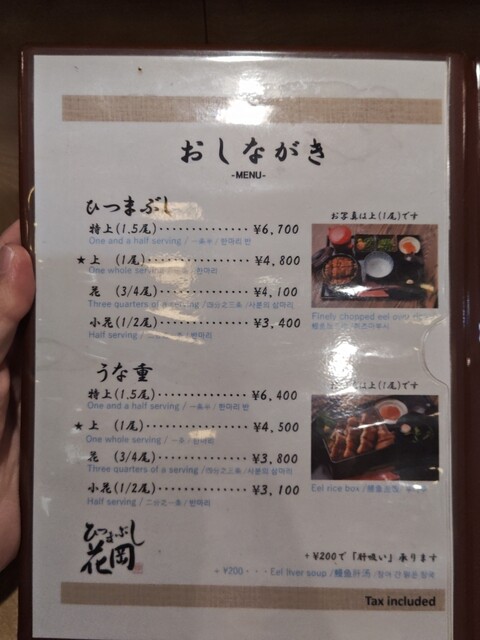 おしながき
-MENU-
ひつまぶし
特上(1.5尾)‥‥‥‥‥¥6,700
One and a half serving / 一条半 / 한마리 반
★上 (1尾)‥‥‥‥‥¥4,800
One whole serving / 한마리
花 (3/4尾)‥‥‥‥‥¥4,100
Three quarters of a serving /四分之三条 /사분의 삼마리
小花(1/2尾)‥‥‥‥‥¥3,400
Half serving / 반마리
お写真は上(1尾)です
Finely chopped eel over
うな重
特上(1.5尾)‥‥‥‥‥¥6,400
One and a half serving / 一条半 / 한마리 반
★上 (1尾)‥‥‥‥‥¥4,500
One whole serving / 一条 / 한마리
花 (3/4尾)‥‥‥‥‥¥3,800
Three quarters of a serving /四分之三条 /사분의 삼마리
小花(1/2尾)‥‥‥‥‥¥3,100
Half serving / 二分之一条 / 반마리
は上(1尾)です
Eel rice box / 鳗鱼盒饭
ひつまぶし
花岡
+¥200で「肝吸い」承ります
+¥200・・・Eel liver soup /鳗鱼肝汤 /장어 간 맑은 장국
Tax included